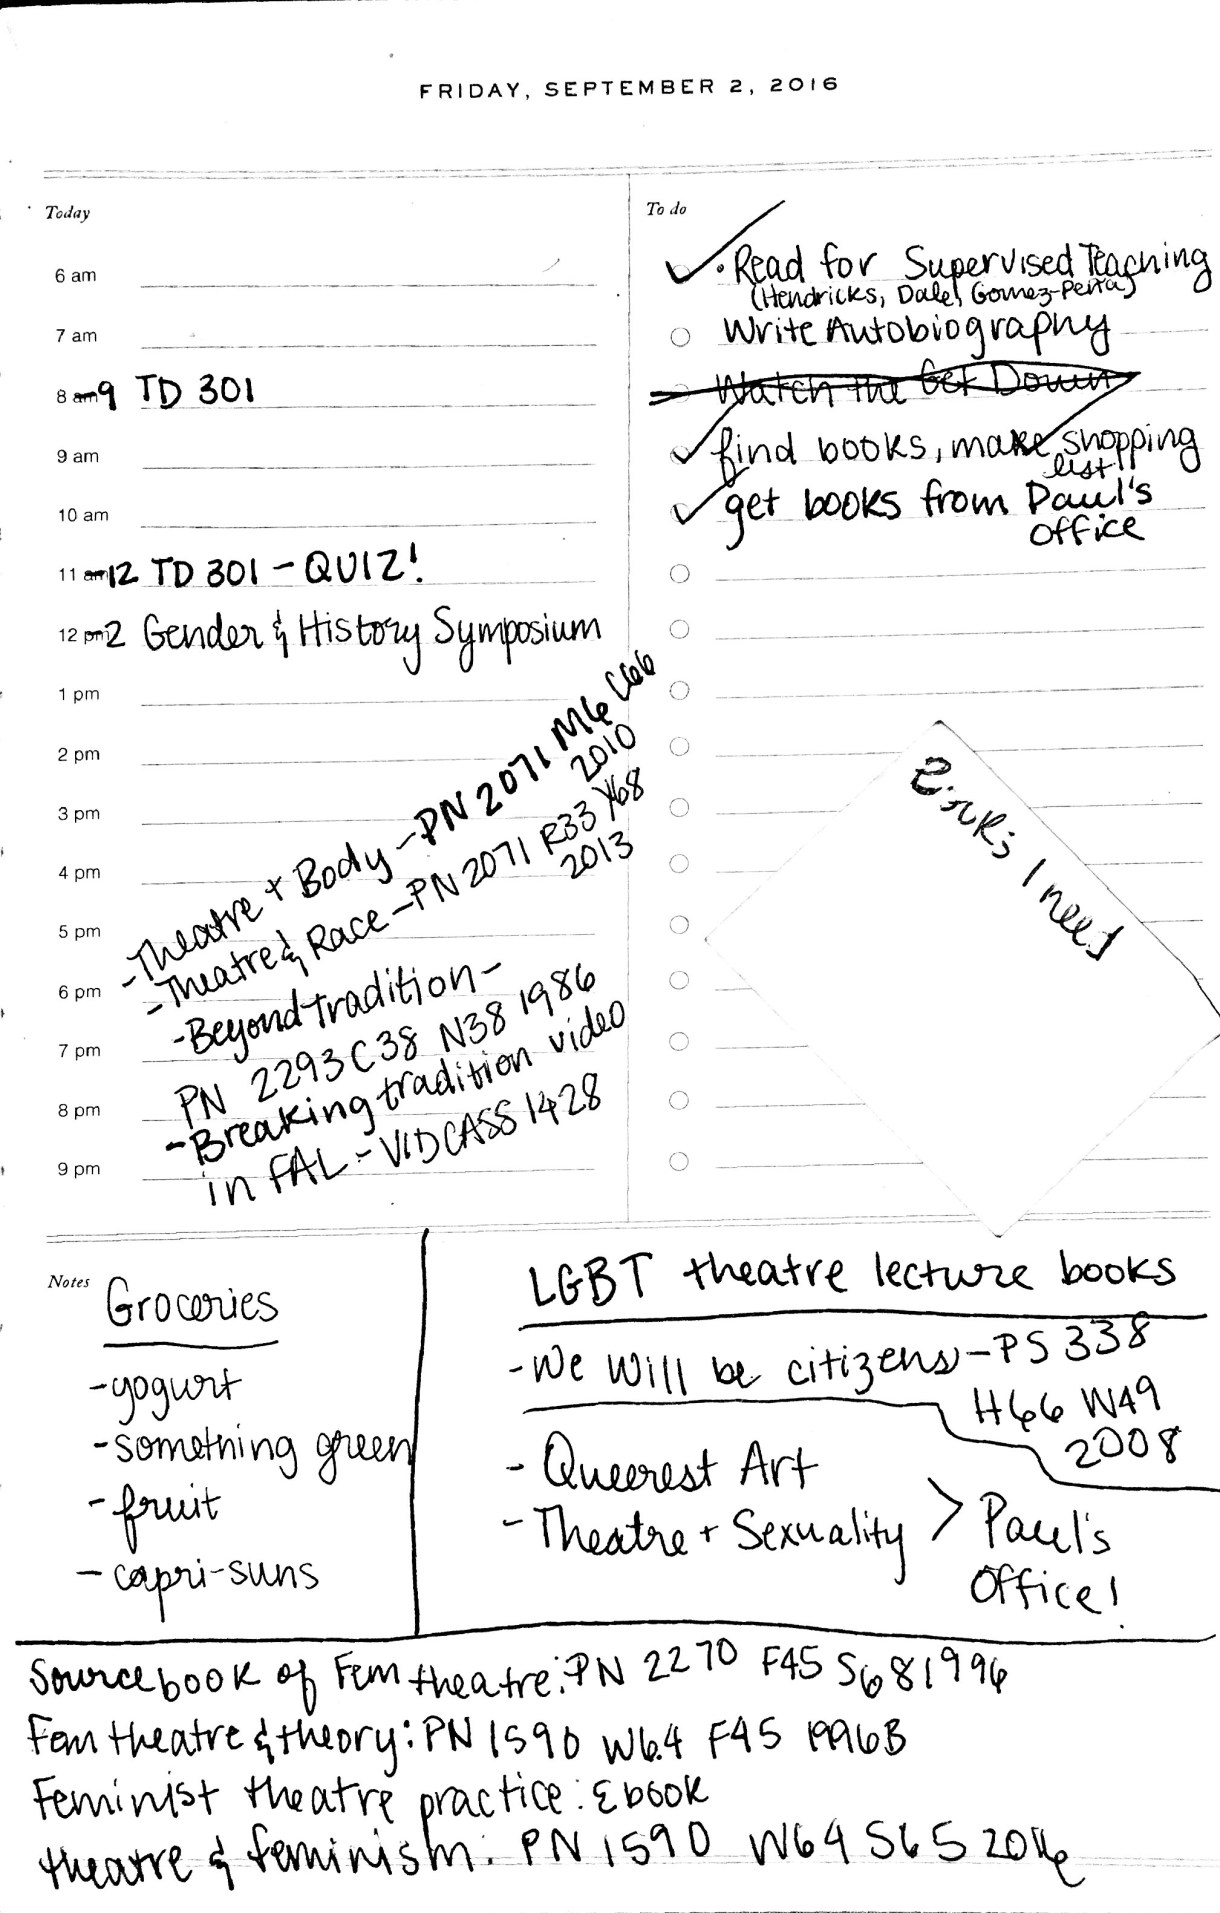 FRIDAY, SEPTEMBER 2, 2016
Today
6 am
7 am
8 am-9 TD 301
9 am
10 am
11 am-12 TD 301 - QUIZ!
12 pm-2 Gender & History Symposium
1 pm
2 pm
3 pm
4 pm
5 pm
6 pm
7 pm
8 pm
9 pm
-Theatre + Body - PN 2071 M6 C66
2010
-Theatre & Race - PN 2071 R33 Y68
2013
-Beyond tradition -
PN 2293 C38 N38 1986
-Breaking tradition video
in FAL - VIDCASS 1428
To do
• Read for Supervised Teaching
(Hendricks, Dale, Gomez-Peña)
Write Autobiography
Watch the Get Down
find books, make shopping
list
get books from Paul's
office
I need
Notes
Groceries
-yogurt
-something green
-fruit
-capri-suns
LGBT theatre lecture books
-We Will be citizens - PS 338
H66 W49
2008
- Queerest Art
- Theatre + Sexuality > Paul's
Office!
Sourcebook of Fem theatre: PN 2270 F45 S68 1996
Fem theatre & theory: PN 1590 W64 F45 1996B
Feminist theatre practice: Ebook
theatre & feminism: PN 1590 W64 S65 2016